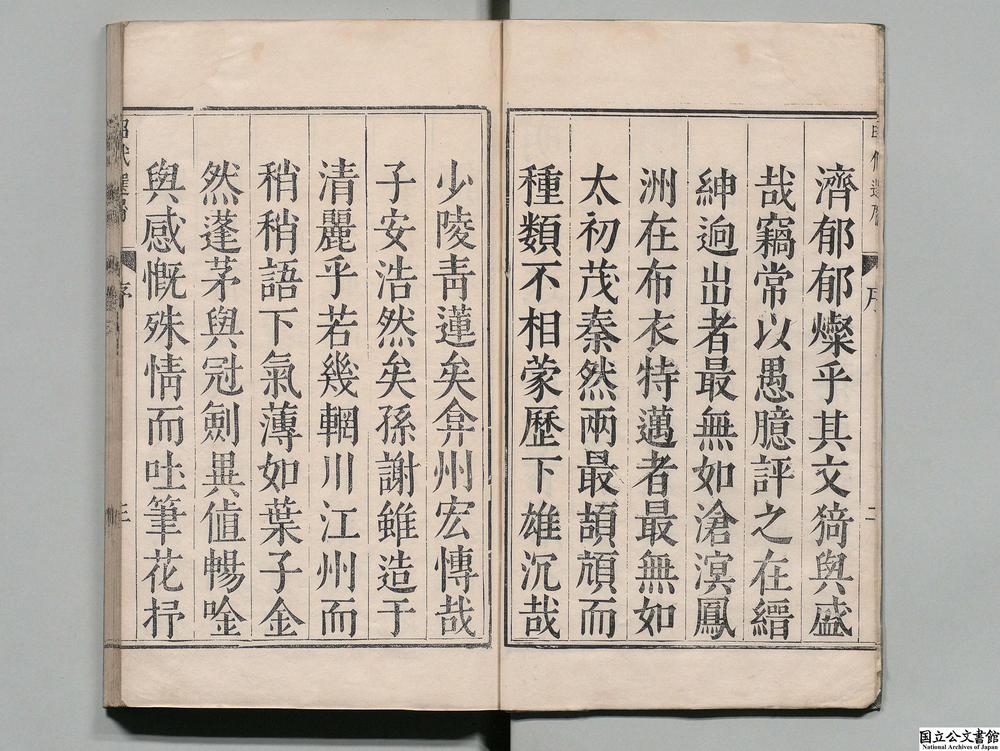 濟郁郁燦乎其文猗與盛
哉竊常以愚臆評之在縉
紳逈出者最無如滄溟鳳
洲在布衣特邁者最無如
太初茂秦然兩最頡頏而
種類不相蒙歷下雄沉哉
少陵靑蓮矣弇州宏慱哉
子安浩然矣孫謝雖造于
清麗乎若幾輞川江州而
稍稍語下氣薄如葉子金
然蓬茅與冠劍異値暢唫
與感慨殊情而吐筆花抒
昭代選屑
序
三
二
国立公文書館
National Archives of Japan